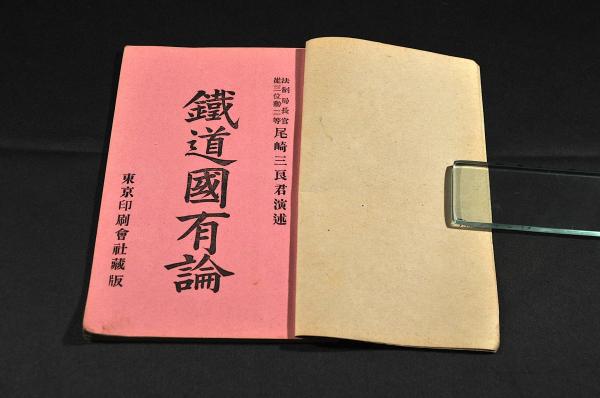 法制局長官
從三位勲二等
尾崎三良君演述
鐵道國有論
東京印刷會社藏版